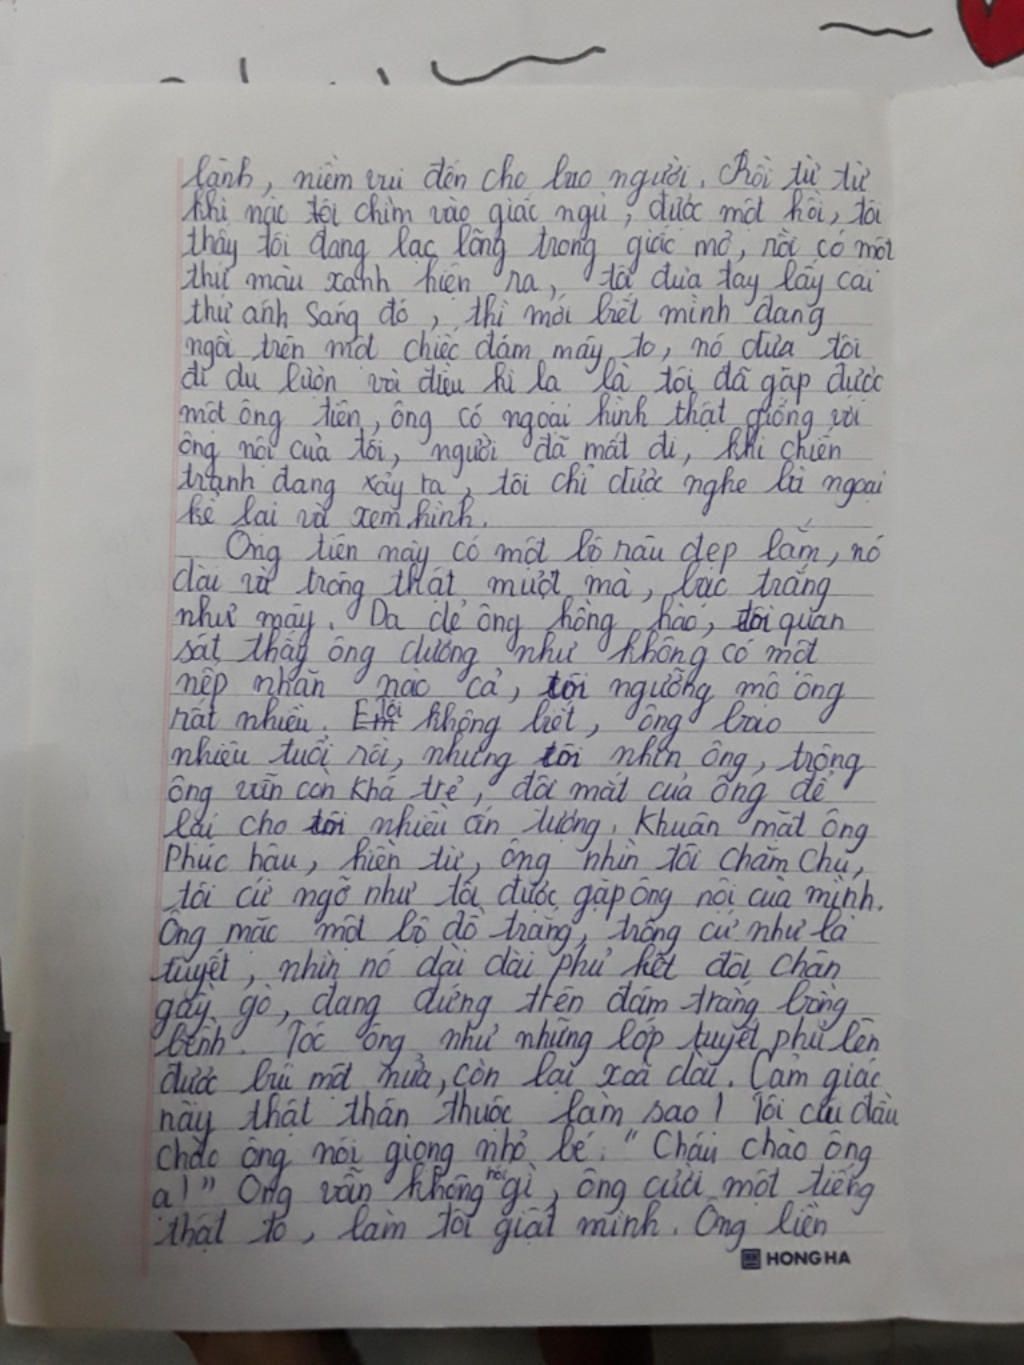 lành, niềm vui đến cho bao người. Rồi từ từ
khi nào tôi chìm vào giấc ngủ, được một hồi, tôi
thấy tôi đang lạc lõng trong giấc mơ, rồi có một
thứ màu xanh hiện ra, tôi đưa tay lấy cái
thứ ánh sáng đó, thì mới biết mình đang
ngồi trên một chiếc đám mây to, nó đưa tôi
đi du lượn và điều kì lạ là tôi đã gặp được
một ông tiên, ông có ngoại hình thật giống với
ông nội của tôi, người đã mất đi, khi chiến
tranh đang xảy ra, tôi chỉ được nghe bà ngoại
kể lại và xem hình.
Ông tiên này có một bộ râu đẹp lắm, nó
dài và trông thật mượt mà, bạc trắng
như mây. Da dẻ ông hồng hào, tôi quan
sát thấy ông dường như không có một
nếp nhăn nào cả, tôi ngưỡng mộ ông
rất nhiều. Em tôi không biết, ông bao
nhiêu tuổi rồi, nhưng tôi nhìn ông, trông
ông vẫn còn khá trẻ, đôi mắt của ông để
lại cho tôi nhiều ấn tượng. Khuân mặt ông
phúc hậu, hiền từ, ông nhìn tôi chăm chú,
tôi cứ ngỡ như tôi được gặp ông nội của mình.
Ông mặc một bộ đồ trắng, trông cứ như là
tuyết, nhìn nó dài dài phủ hết đôi chân
gầy gò, đang đứng trên đám trắng bồng
bềnh. Tóc ông như những lớp tuyết phủ lên
được búi một nửa, còn lại xoã dài. Cảm giác
này thật thân thuộc làm sao! Tôi cúi đầu
chào ông nói giọng nhỏ bé: "Cháu chào ông
ạ!" Ông vẫn không nói gì, ông cười một tiếng
thật to, làm tôi giật mình. Ông liền
HONG HA